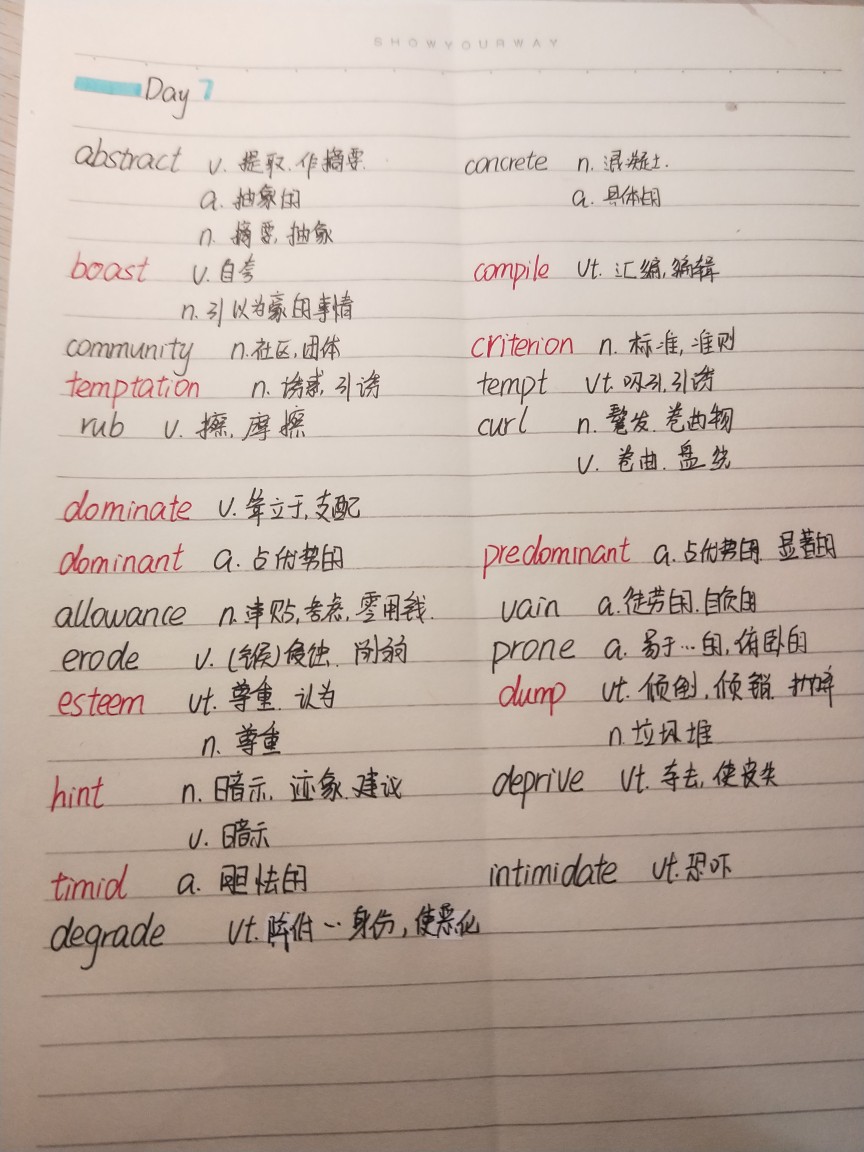 SHOWYOURWAY
Day 7
abstract v. 提取.作摘要. concrete n. 混凝土.
a. 抽象的 a. 具体的
n. 摘要,抽象
boast v. 自夸 compile vt. 汇编,编辑
n. 引以为豪的事情
community n.社区,团体 criterion n. 标准,准则
temptation n. 诱惑,引诱 tempt vt. 吸引,引诱
rub v. 擦,摩擦 curl n. 鬈发.卷曲物
v. 卷曲.盘绕
dominate v. 耸立于,支配
dominant a. 占优势的 predominant a. 占优势的 显著的
allowance n.津贴,考虑,零用钱. vain a.徒劳的.自负的
erode v. (被)侵蚀. 削弱 prone a. 易于…的,俯卧的
esteem vt. 尊重. 认为 dump vt. 倾倒,倾销.
n. 尊重 n.垃圾堆
hint n. 暗示, 迹象.建议 deprive vt. 夺去,使丧失
v. 暗示
timid a. 胆怯的 intimidate vt.恐吓
degrade vt.降低…身份,使恶化